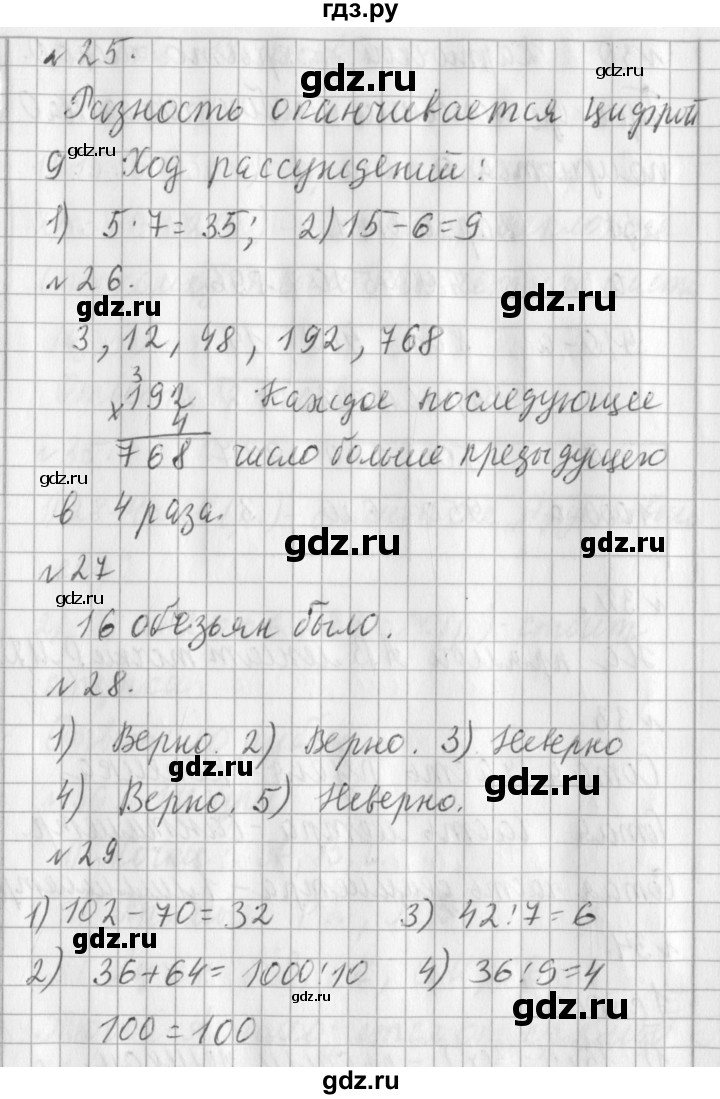 гдз.ру
№ 25.
gdz.ru
gdz.ru
Разность оканчивается цифрой
gdz.ru
9 Ход рассуждений:
1) 5·7=35; 2) 15-6=9
№ 26.
gdz.ru
gdz.ru
3, 12, 48, 192, 768
3
×192 Каждое последующее
4
768 число больше предыдущего
gdz.ru
в 4 раза.
gdz.ru
gdz.ru
№ 27
gdz.ru
16 обезьян было.
№ 28.
1) Верно. 2) Верно. 3) Неверно
gdz.ru
gdz.ru
4) Верно. 5) Неверно.
№ 29.
1) 102-70=32 3) 42:7=6
gdz.ru
2) 36+64=1000:10 4) 36:9=4
gdz.ru
gdz.ru
100=100
gdz.ru